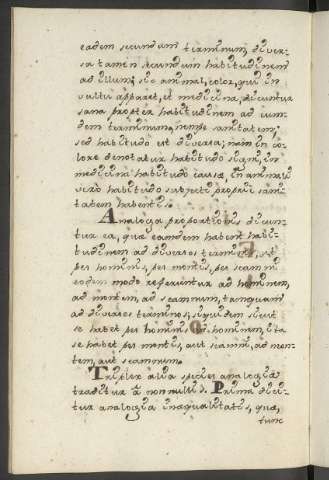 eadem secundum terminum, diver-
sa tamen secundum habitudinem
ad illum; sic animal, color, qui in
vultu apparet, et medicina, dicuntur
sana propter habitudinem ad eun-
dem terminum, nempe sanitatem,
sed habitudo est diversa; nam in co-
lore denotatur habitudo signi, in
medicina habitudo causæ, in animali
vero habitudo subjecti proprii sani-
tatem habentis.
Analoga proportionis dicun-
tur ea, quæ eamdem habent habi-
tudinem ad diversos terminos, sit
pes hominis, pes mentis, pes scamni
eodem modo referuntur ad hominem,
ad montem, ad scamnum, tanquam
ad diversos terminos; siquidem sicut
se habet pes hominis ad hominem, ita
se habet pes montis, aut scamni, ad mon-
tem, aut scamnum.
Triplex alia species analogiæ
traditur à nonnullis. Prima dici-
tur analogia inæqualitatis, quæ,
tunc